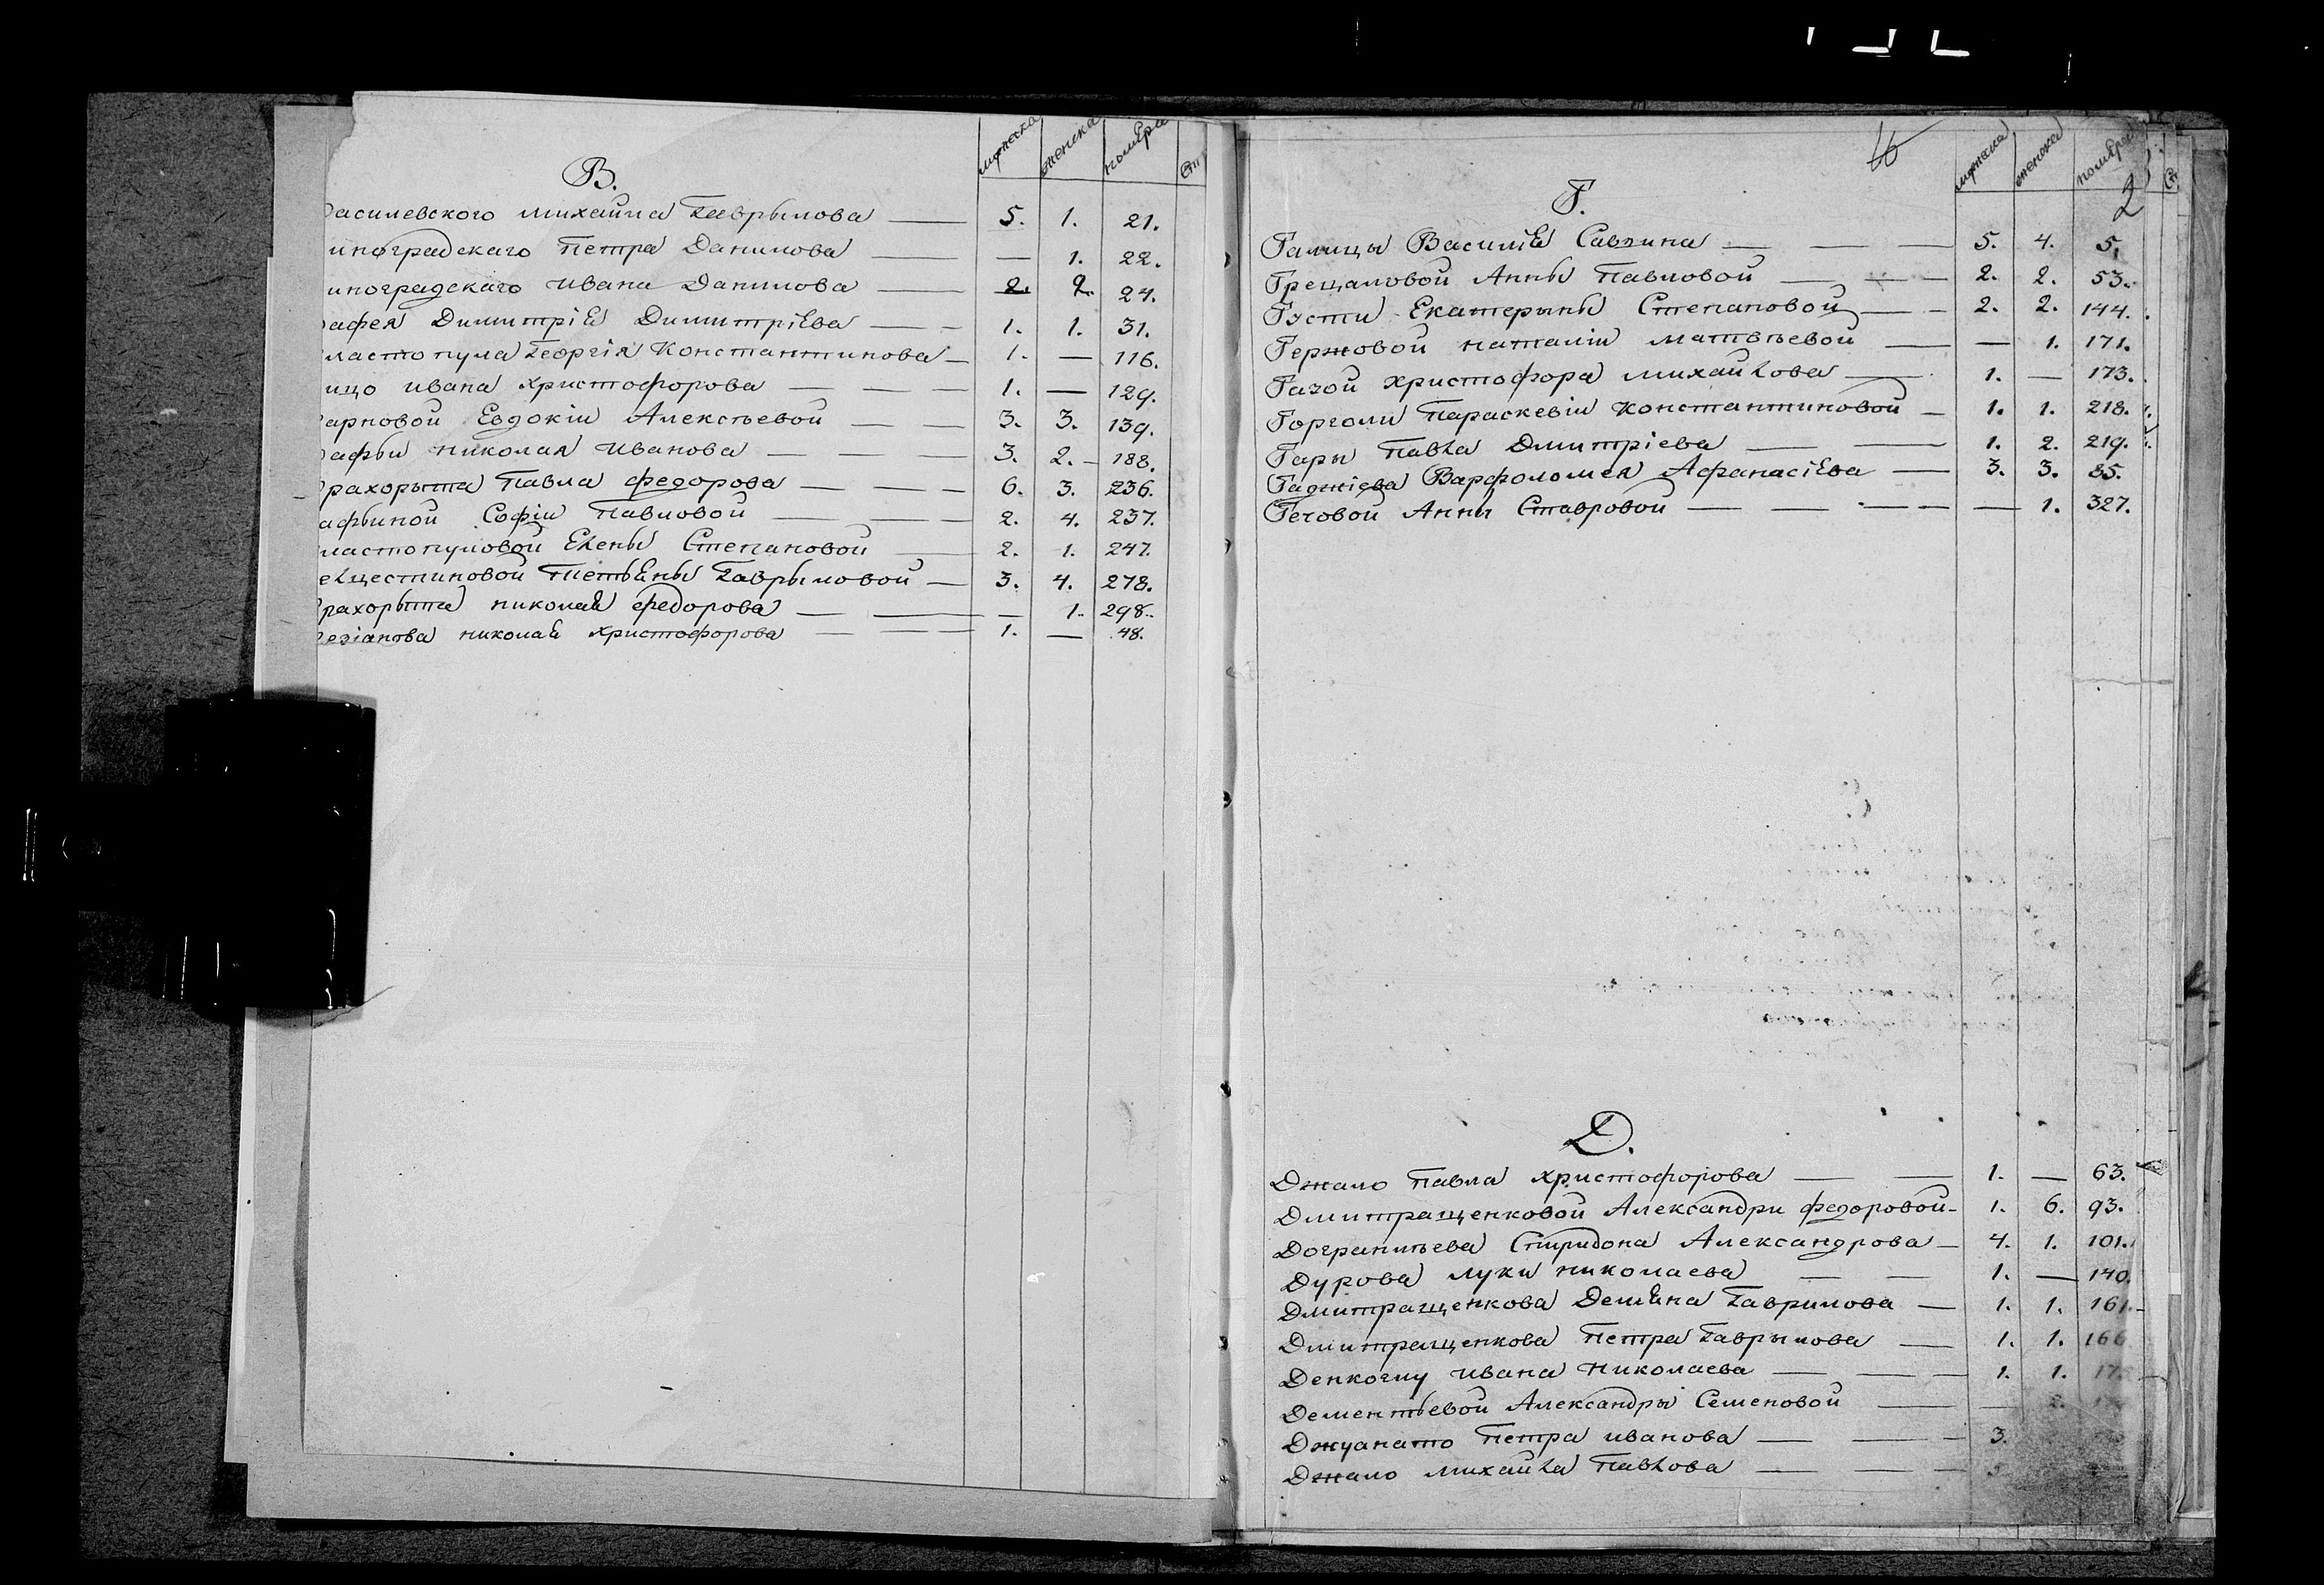 мужска женска номѣра
В.
асилевского Михайла Гаврылова — 5. 1. 21.
иноградскаго Петра Данилова — — 1. 22.
иноградскаго Ивана Данилова — 2. 2. 24.
афея Димитрія Димитріева — 1. 1. 31.
ластопула Георгія Константинова — 1. — 116.
ицо Ивана Христофорова — 1. — 129.
арповой Евдокіи Алексѣевой — 3. 3. 139.
афы Николая Иванова — 3. 2. 188.
рахорыта Павла Федорова — 6. 3. 236.
афыной Софіи Павловой — 2. 4. 237.
ластопуловой Елены Степановой — 2. 1. 247.
Гаврыловой — 3. 4. 278.
рахорыта Николая Федорова — — 1. 298.
Николая Христофорова — 1. — 48.
мужска женска номѣра
2
Г.
Галицы Василія Саввина — 5. 4. 5.
Грецаловой Анны Павловой — 2. 2. 53.
Густи Екатерыны Степановой — 2. 2. 144.
Гержовой Наталіи Матвѣевой — — 1. 171.
Газой Христофора Михайлова — 1. — 173.
Горголи Параскевіи Константиновой — 1. 1. 218.
Гары Павла Дмитріева — 1. 2. 219.
Гаджіева Варфоломея Афанасіева — 3. 3. 85.
Геговой Анны Ставровой — — 1. 327.
Д.
Джало Павла Христофорова — 1. — 63.
Дмитращенковой Александри Федоровой — 1. 6. 93.
Спиридона Александрова — 4. 1. 101.
Дурова Луки Николаева — 1. — 140.
Дмитращенкова Демяна Гаврилова — 1. 1. 161.
Дмитращенкова Петра Гаврылова — 1. 1. 166
Денкоглу Ивана Николаева — 1. 1.
Дементьевой Александры Семеновой — — 2.
Джуанато Петра Иванова — 3.
Джало Михайла Павлова —